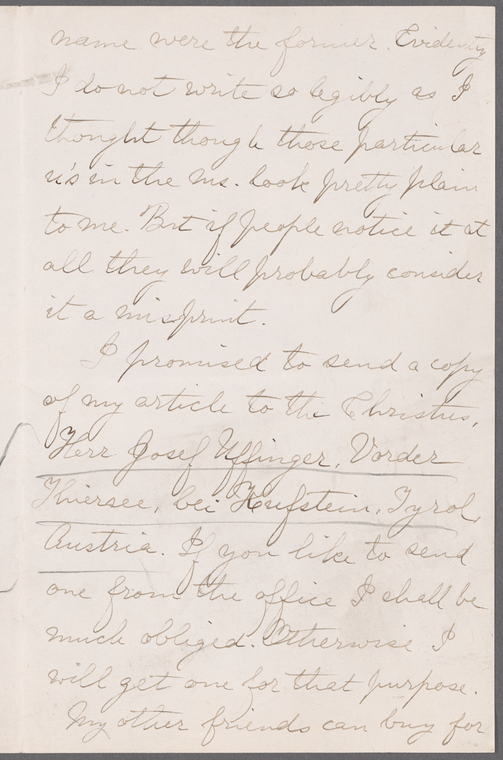 name were the former. Evidently
I do not write so legibly as I
thought though those particular
u's in the ms. look pretty plain
to me. But if people notice it at
all they will probably consider
it a misprint.
I promised to send a copy
of my article to the Christus,
Herr Josef Uffinger, Vorder
Thiersee, bei Kufstein, Tyrol,
Austria. If you like to send
one from the office I shall be
much obliged. Otherwise I
will get one for that purpose.
My other friends can buy for